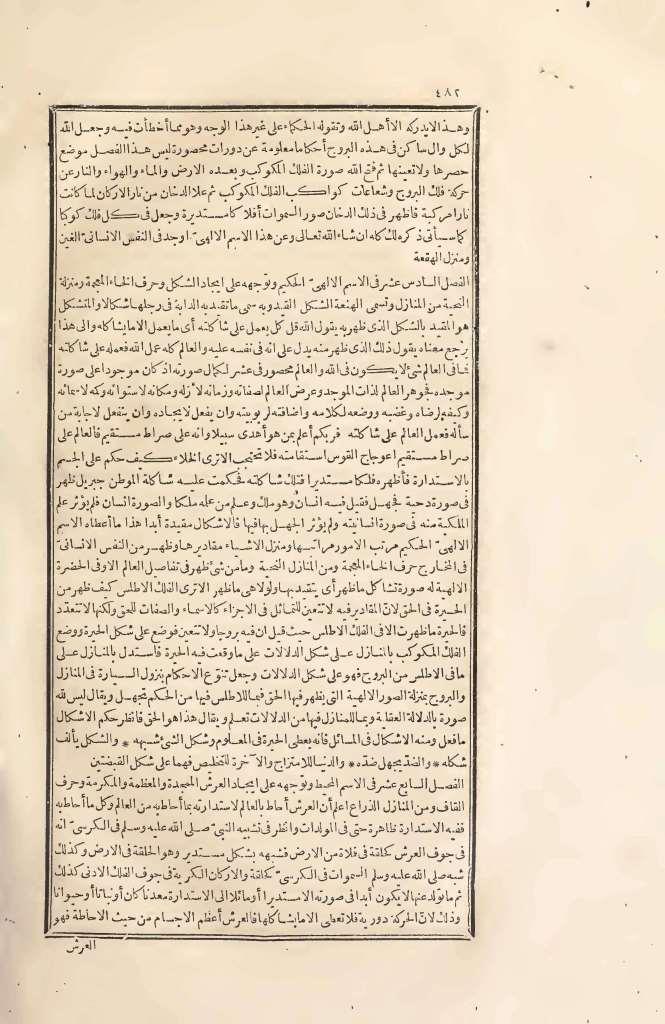 ٤٨٢
وهذا لا يدركه الا أهل الله وتقوله الحكماء على غير هذا الوجه وهو مما أخطأت فيه وجعل الله
لكل وال ساكن فى هذه البروج أحكاما معلومة عن دورات محصورة ليس هذا الفصل موضع
حصرها ولا تعيينها ثم فتح الله صورة الفلك المكوكب وبعده الارض والماء والهواء والنار عن
حركة فلك البروج وشعاعات كواكب الفلك المكوكب ثم علا الدخان من نار الاركان لما كانت
نارا مركبة فاظهر فى ذلك الدخان صور السموات أفلاكا مستديرة وجعل فى كل فلك كوكبا
كما سيأتى ذكر ذلك كله ان شاء الله تعالى وعن هذا الاسم الالهىّ أوجد فى النفس الانسانىّ الغين
ومنزل الهقعة
الفصل السادس عشر فى الاسم الالهىّ الحكيم وتوجهه على ايجاد الشكل وحرف الخاء المعجمة ومنزلة
التحية من المنازل وتسمى الهنعة الشكل القيد وبه سمى ما تقيد به الدابة فى رجلها شكالا والمتشكل
هو المقيد بالشكل الذى ظهر به يقول الله قل كل يعمل على شاكلته أى ما يعمل الا ما يشاكله والى هذا
يرجع معناه يقول ذلك الذى ظهر منه يدل على انه فى نفسه عليه والعالم كله عمل الله فعمله على شاكلته
فما فى العالم شئ لا يكون فى الله والعالم محصور فى عشر لكمال صورته اذ كان موجودا على صورة
موجده فجوهر العالم لذات الموجد وعرض العالم لصفاته وزمانه لازله ومكانه لاستوائه وكمه لاسمائه
وكيفه لرضاه وغضبه ووضعه لكلامه واضافته لربوبيته وان يفعل لايجاده وان ينفعل لاجابة من
سأله فعمل العالم على شاكلته فربكم أعلم بمن هو أهدى سبيلا وانه على صراط مستقيم فالعالم على
صراط مستقيم اعوجاج القوس استقامته فلا تحتجب الا ترى الخلاء كيف حكم على الجسم
بالاستدارة فأظهره فلكا مستديرا فتلك شاكلته فحكمت عليه شاكلة الموطن جبريل ظهر
فى صورة دحية فجهل فقيل فيه انسان وهو ملك وعلم من علمه ملكا والصورة انسان فلم يؤثر علم
الملكية منه فى صورة انسانيته ولم يؤثر الجهل بها فيها فالاشكال مقيدة أبدا هذا ما أعطاه الاسم
الالهىّ الحكيم مرتب الامور مراتبها ومنزل الاشياء مقاديرها وظهر من النفس الانسانىّ
فى المخارج حرف الخاء المعجمة ومن المنازل التحية وما من شئ ظهر فى تفاصيل العالم الا وفى الحضرة
الالهية له صورة تشاكل ما ظهر أى يتقيد بها ولولا هى ما ظهر الا ترى الفلك الاطلس كيف ظهر من
الحيرة فى الحق لان المقادير فيه لا تتعين للتماثل فى الاجزاء كالاسماء والصفات للحق ولكنها لا تتعدد
فالحيرة ما ظهرت الا فى الفلك الاطلس حيث قيل ان فيه بروجا ولا تتعين فوضع على شكل الحيرة ووضع
الفلك المكوكب بالمنازل على شكل الدلالات على ما وقعت فيه الحيرة فاستدل بالمنازل على
ما فى الاطلس من البروج فهو على شكل الدلالات وجعل تنوّع الاحكام بنزول السيارة فى المنازل
والبروج بمنزلة الصور الالهية التى يظهر فيها الحق فما للاطلس فيها من الحكم تجهل ويقال ليس لله
صورة بالدلالة العقلية وبما للمنازل فيها من الدلالات تعلم ويقال هذا هو الحق فانظر حكم الاشكال
ما فعل ومنه الاشكال فى المسائل فانه يعطى الحيرة فى المعلوم وشكل الشئ شبيهه * والشكل يألف
شكله * والضدّ يجهل ضدّه * والدنيا للامتزاج والآخرة للتخليص فهما على شكل القبضتين
الفصل السابع عشر فى الاسم المحيط وتوجهه على ايجاد العرش الممجدة والمعظمة والمكرمة وحرف
القاف ومن المنازل الذراع اعلم أن العرش أحاط بالعالم لاستدارته بما أحاط به من العالم وكل ما أحاط به
ففيه الاستدارة ظاهرة حتى فى المولدات وانظر فى تشبيه النبىّ صلى الله عليه وسلم فى الكرسىّ انه
فى جوف العرش كحلقة فى فلاة من الارض فشبهه بشكل مستدير وهو الحلقة فى الارض وكذلك
شبه صلى الله عليه وسلم السموات فى الكرسىّ كحلقة والاركان الكرية فى جوف الفلك الادنى كذلك
ثم ما تولد عنها لا يكون أبدا فى صورته الا مستديرا أو مائلا الى الاستدارة معدنا كان أو نباتا أو حيوانا
وذلك لان الحركة دورية فلا تعطى الا ما يشاكلها فالعرش أعظم الاجسام من حيث الاحاطة فهو
العرش